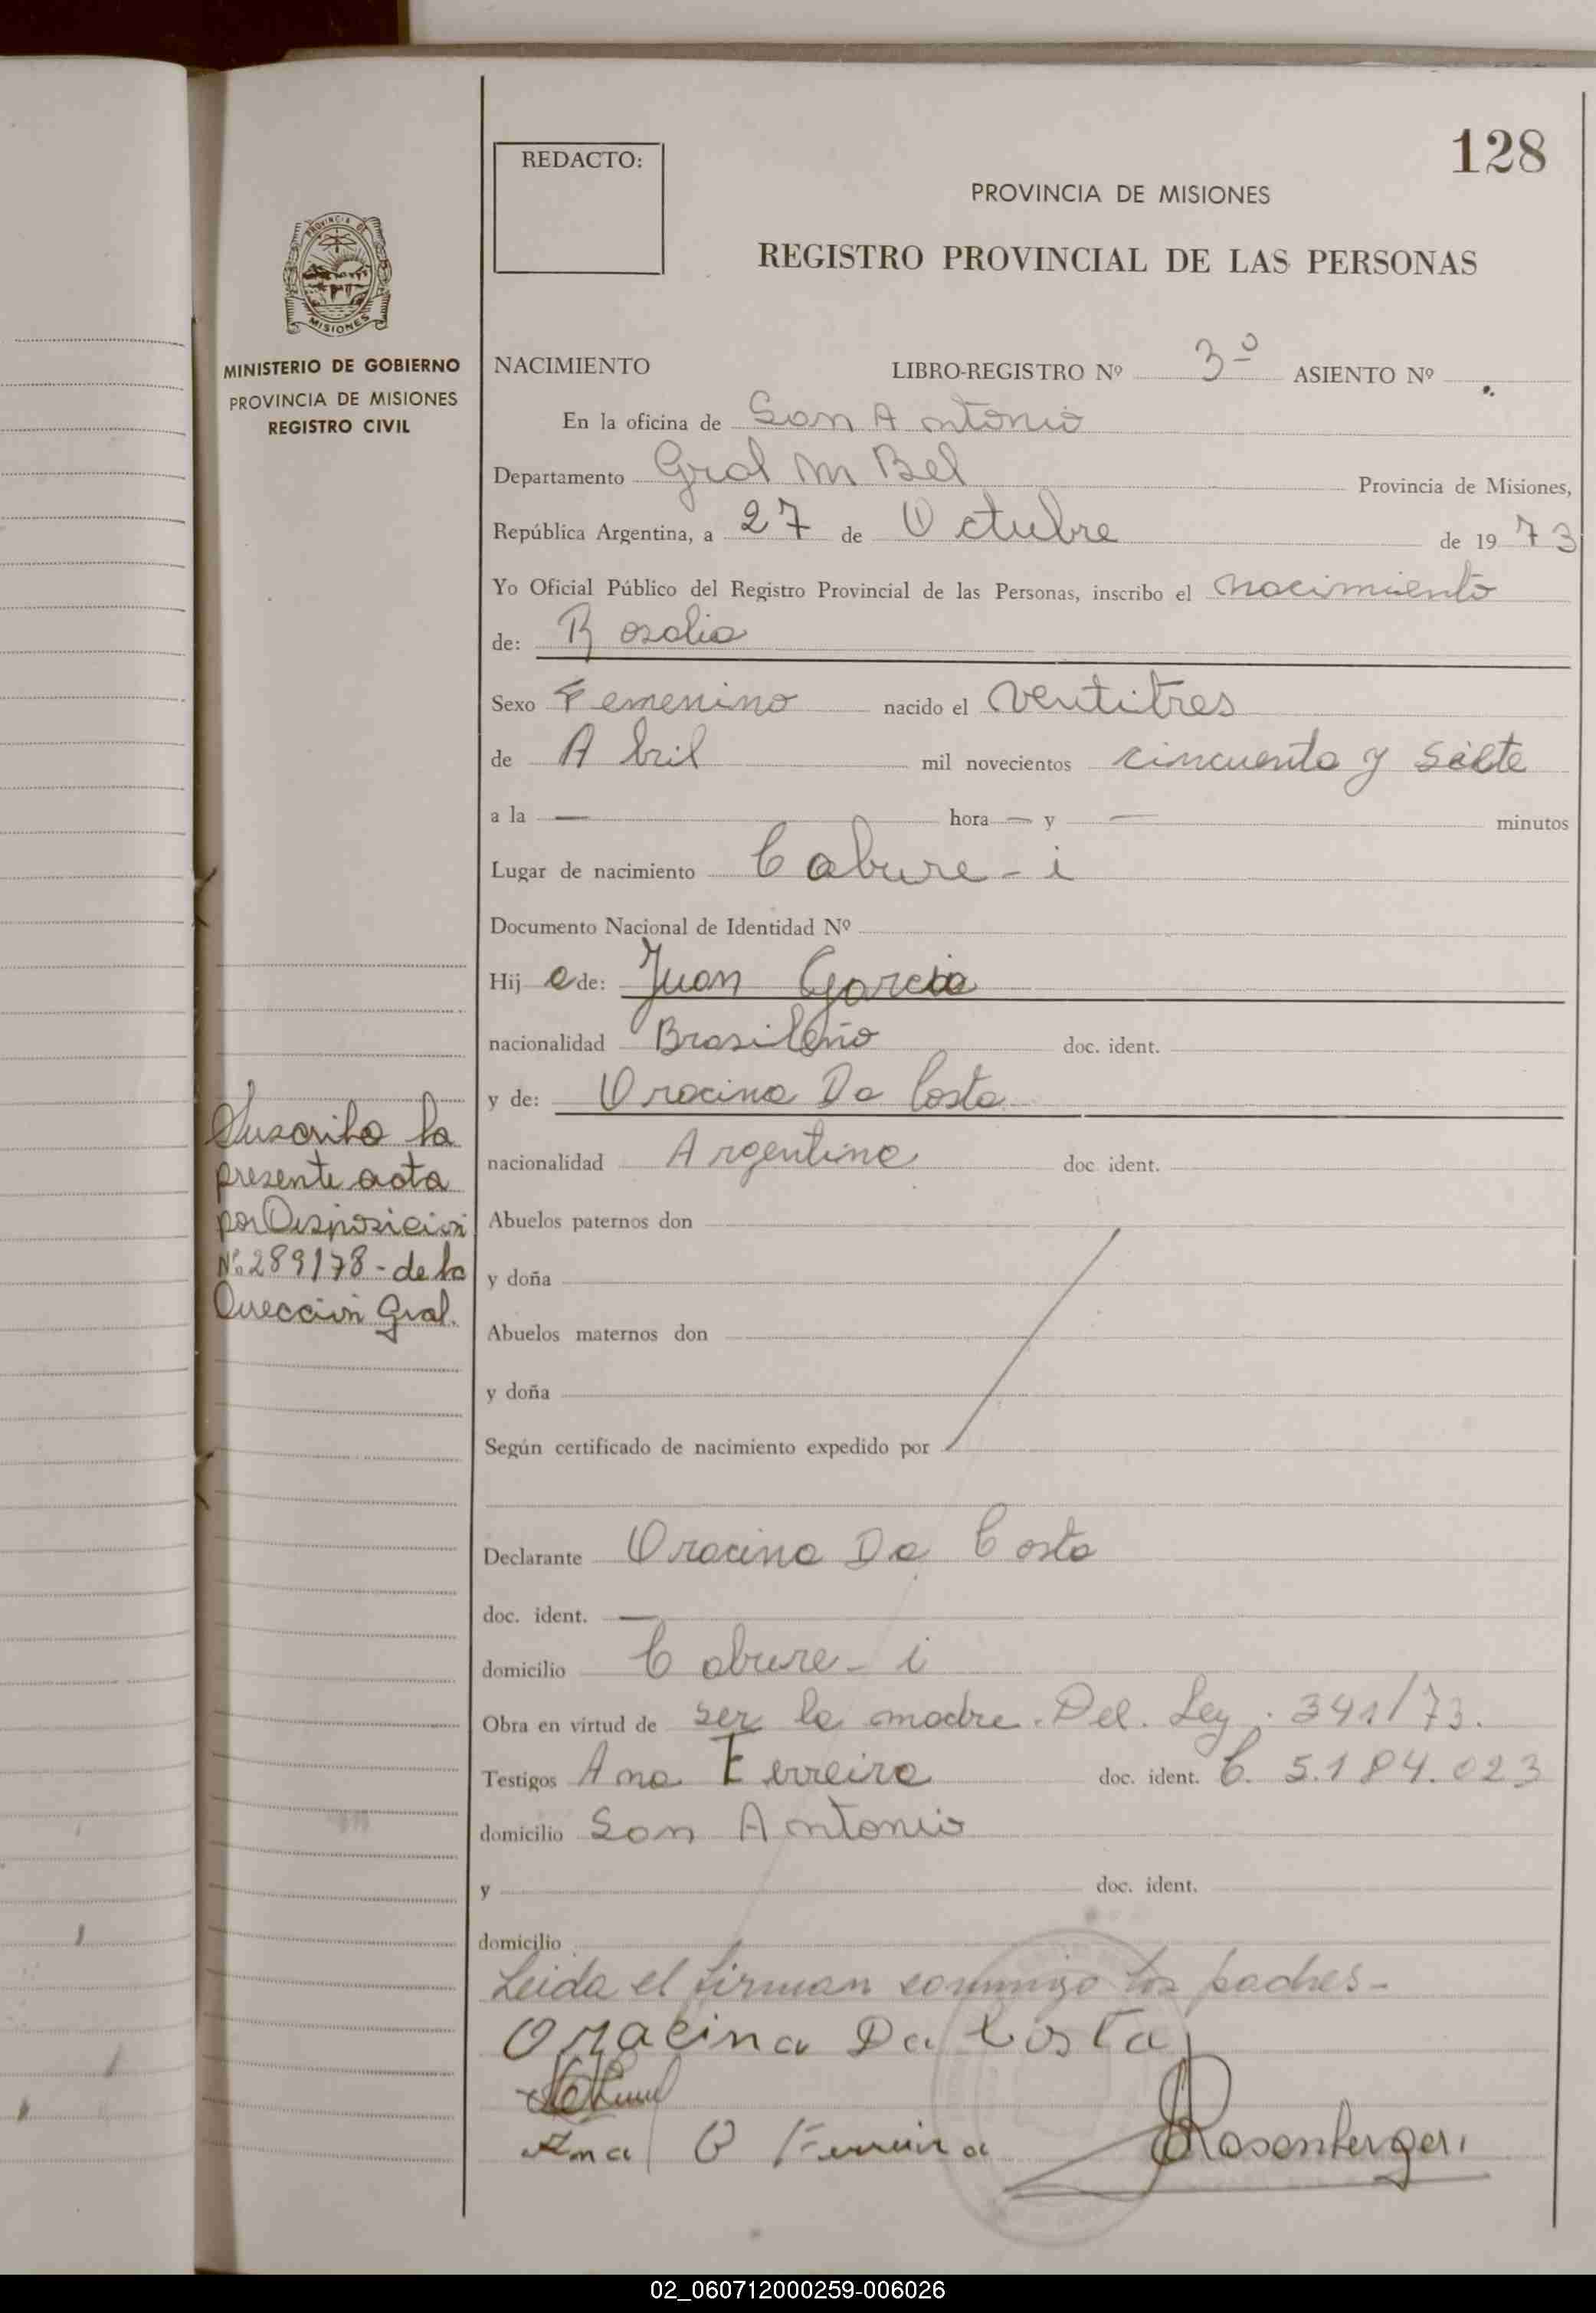 128
REDACTO:
PROVINCIA DE MISIONES
REGISTRO PROVINCIAL DE LAS PERSONAS
PROVINCIA DE
MISIONES
MINISTERIO DE GOBIERNO
PROVINCIA DE MISIONES
REGISTRO CIVIL
NACIMIENTO LIBRO-REGISTRO Nº 3º ASIENTO Nº
En la oficina de San Antonio
Departamento Gral M Bel Provincia de Misiones,
República Argentina, a 27 de Octubre de 1973
Yo Oficial Público del Registro Provincial de las Personas, inscribo el nacimiento
de: Rosalia
Sexo Femenino nacido el ventitres
de Abril mil novecientos cincuenta y siete
a la — hora — y — minutos
Lugar de nacimiento Cabure-i
Documento Nacional de Identidad Nº
Hij a de: Juan Garcia
nacionalidad Brasileño doc. ident.
y de: Oracina Da Costa
nacionalidad Argentina doc. ident.
Abuelos paternos don
y doña
Abuelos maternos don
y doña
Según certificado de nacimiento expedido por
Suscribo la
presente acta
por Disposicion
Nº 289178 - de la
Direccion Gral.
Declarante Oracina Da Costa
doc. ident. —
domicilio Cabure-i
Obra en virtud de ser la madre. Del. Ley. 341/73.
Testigos Ana Ferreira doc. ident. C. 5.184.023
domicilio San Antonio
y doc. ident.
domicilio
Leida el firman conmigo los padres-
Oracina Da Costa
Ana O Ferreira Rosenberger
02_060712000259-006026